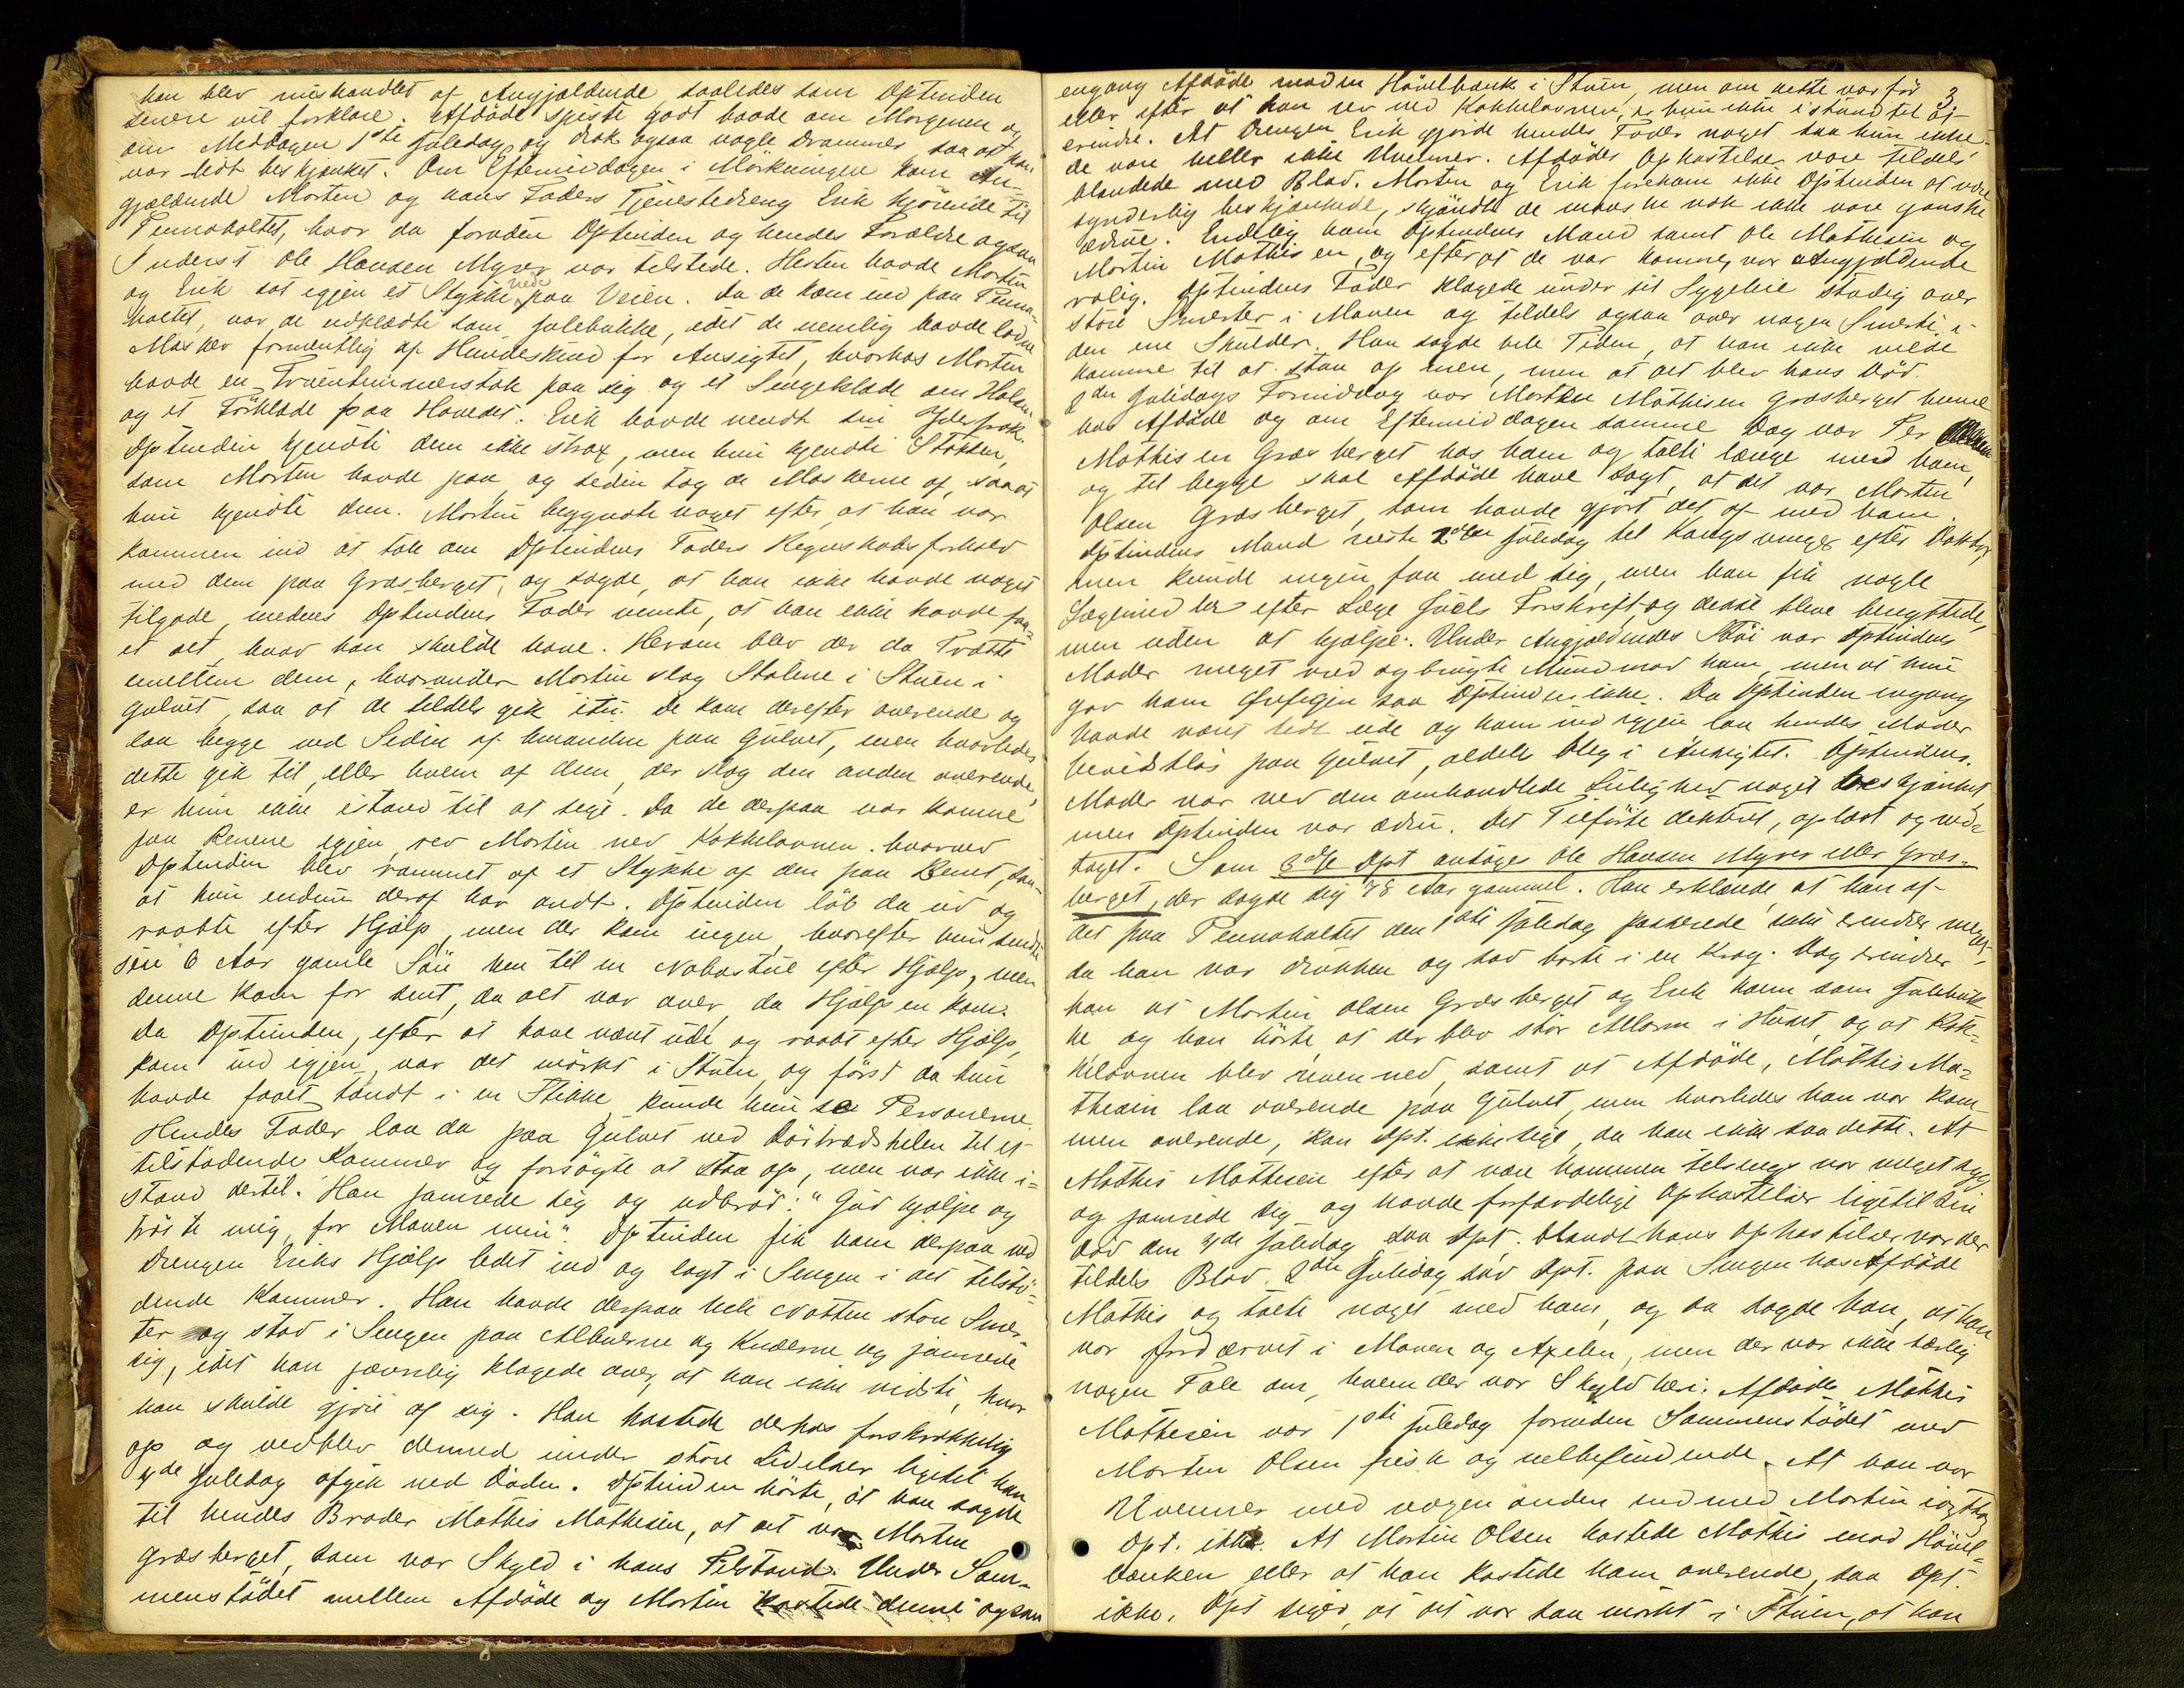 han blev mishandlet af Angjældende saaledes som Optrinden
senere vil forklare. Afdøde spiste godt baade om Morgenen og
om Middagen 1ste Juledag og drak ogsaa nogle Drammer saa at han
var lidt beskjænket. Om Eftermiddagen i Mørkningen kom An-
gjældende Morten og hans Faders Tjenestedreng Erik kjørende til
Pennaholtet, hvor da foruden Optinden og hendes Forældre ogsaa
Inderst Ole Hansen Myrer var tilstede. Hesten havde Morten
og Erik sat igjen et Stykke nede paa Veien. Da de kom ind paa Penna-
holtet, var de udklædte som Julebukke, idet de nemlig havde lodne
Masker formentlig af Hundeskind for Ansigtet, hvorhos Morten
havde en Fruentimmerstak paa sig og et Sengeklæde om Halsen
og et Tørklæde paa Hovedet. Erik havde vendt sin Yderfrak.
Optinden kjendte dem ikke strax, men hun kjendte Stakken,
som Morten havde paa, og siden tog de Maskerne af, saa at
hun kjendte dem. Morten begyndte noget efter at han var
kommen ind at tale om Optindens Faders Regnskabsforhold
med dem paa Græsberget, og sagde, at han ikke havde noget
tilgode, medens Optindens Fader mente, at han ikke havde faa-
et alt, hvad han skulde have. Herom blev der da Trætte
imellem dem, hvorunder Morten slog Stolene i Stuen i
Gulvet, saa at de tildels gik itu. De kom derefter overende og
laa begge ved Siden af hinanden paa Gulvet, men hvorledes
dette gik til, eller hvem af dem, der slog den anden overende,
er hun ikke istand til at sige. Da de derpaa var komne
paa Benene igjen, rev Morten ned Kakkelovnen, hvorved
Optinden blev rammet af et Stykke af den paa Benet, saa-
at hun endnu deraf har ondt. Optinden løb da ud og
raabte efter Hjælp, men der kom ingen, hvorefter hun sendte
sin 6 Aar gamle Søn hen til en Nabostue efter Hjælp, men
denne kom for sent, da alt var over, da Hjælpen kom.
Da Optinden, efter at have været ude og raabt efter Hjælp,
kom ind igjen, var det mørkt i Stuen, og først da hun
havde faaet tændt i en Stikke, kunde hun se Personerne.
Hendes Fader laa da paa Gulvet ved Dørtrædskelen til et
tilstødende Kammer og forsøgte at staa op, men var ikke i-
stand dertil. Han jamrede sig og udbrød: "Gud hjælpe og
trøste mig, for Maven min". Optinden fik ham derpaa ved
Drengen Eriks Hjælp ledet ind og lagt i Sengen i det tilstø-
dende Kammer. Han havde derpaa hele Natten store Smer-
ter og stod i Sengen paa Albuerne og Knæerne og jamrede
sig, idet han jævnlig klagede over, at han ikke vidste, hvor
han skulde gjøre af sig. Han kastede derhos forskrækkelig
op og vedblev dermed under store Lidelser ligetil han
4de Juledag afgik ved Døden. Optinden hørte, at han sagde
til hendes Broder Mathis Mathisen, at det var Morten
Græsberget, som var Skyld i hans Tilstand. Under Sam-
menstødet mellem Afdøde og Morten kastede denne ogsaa
3
engang Afdøde mod en Høvelbænk i Stuen, men om dette var før
eller efter at han rev ned Kakkelovnen, er hun ikke istand til at
erindre. At Drengen Erik gjorde hendes Fader noget saa hun ikke.
de vare heller ikke Uvenner. Afdødes Opkastelser vare tildels
blandede med Blod. Morten og Erik forekom ikke Optinden at være
synderlig beskjænkede, skjøndt de maaske nok ikke vare ganske
ædrue. Endelig kom Optindens Mand samt Ole Mathisen og
Morten Mathisen, og efter at de var komne, var Angjældende
rolig. Optindens Fader klagede under sit Sygeleie stadig over
store Smerter i Maven og tildels ogsaa over nogen Smerte i
den ene Skulder. Han sagde hele Tiden, at han ikke vilde
komme til at staa op mere, men at det blev hans Død.
2den Juledags Formiddag var Morten Mathisen Græsberget henne
hos Afdøde og om Eftermiddagen samme Dag var Per
Mathisen Græsberget hos ham og talte længe med ham,
og til begge skal Afdøde have sagt, at det var Morten
Olsen Græsberget, som havde gjort det af med ham.
Optindens Mand reiste 2den Juledag til Kongsvinger efter Doktor,
men kunde ingen faa med sig, men han fik nogle
Lægemidler efter Læge Juels Forskrift, og disse bleve benyttede,
men uden at hjælpe. Under Angjældendes Støi var Optindens
Moder meget vred og brugte Mund mod ham, men at hun
gav ham Ørefigen saa Optinden ikke. Da Optinden engang
havde været lidt ude og kom ind igjen laa hendes Moder
bevidstløs paa Gulvet, aldeles bleg i Ansigtet. Optindens
Moder var ved den omhandlede Leilighed noget beskjænket,
men Optinden var ædru. Det Tilførte dikteret, oplæst og ved-
taget. Som 3die Dpt antoges Ole Hansen Myrer eller Græs-
berget, der sagde sig 78 Aar gammel. Han erklærede, at han af
det paa Pennaholtet den 1ste Juledag passerede ikke erindrer meget,
da han var drukken og sad borte i en Krog. Dog erindrer
han at Morten Olsen Græsberget og Erik kom som Julebuk-
ke og han hørte, at der blev stor Allarm i Huset, og at Kak-
kelovnen blev reven ned, samt at Afdøde, Mathis Ma-
thisen laa overende paa Gulvet, men hvorledes han var kom-
men overende, kan Dpt. ikke sige, da han ikke saa dette. At
Mathis Mathisen efter at være kommen tilsengs var meget syg
og jamrede sig og havde forfærdelige Opkastelser ligetil sin
Død den 4de Juledag saa Dpt. Blandt hans Opkastelser var der
tildels Blod. 2den Juledag sad Dpt. paa Sengen hos Afdøde
Mathis og talte noget med ham, og da sagde han, at han
var fordærvet i Maven og Axelen, men der var ikke særlig
nogen Tale om, hvem der var Skyld heri. Afdøde Mathis
Mathisen var 1ste Juledag forinden Sammenstødet med
Morten Olsen frisk og velbefindende. At han var
Uvenner med nogen anden end med Morten iagttog
Dpt. ikke. At Morten Olsen kastede Mathis mod Høvel-
bænken, eller at han kastede ham overende, saa Dpt.
ikke. Dpt siger, at det var saa mørkt i Stuen, at han